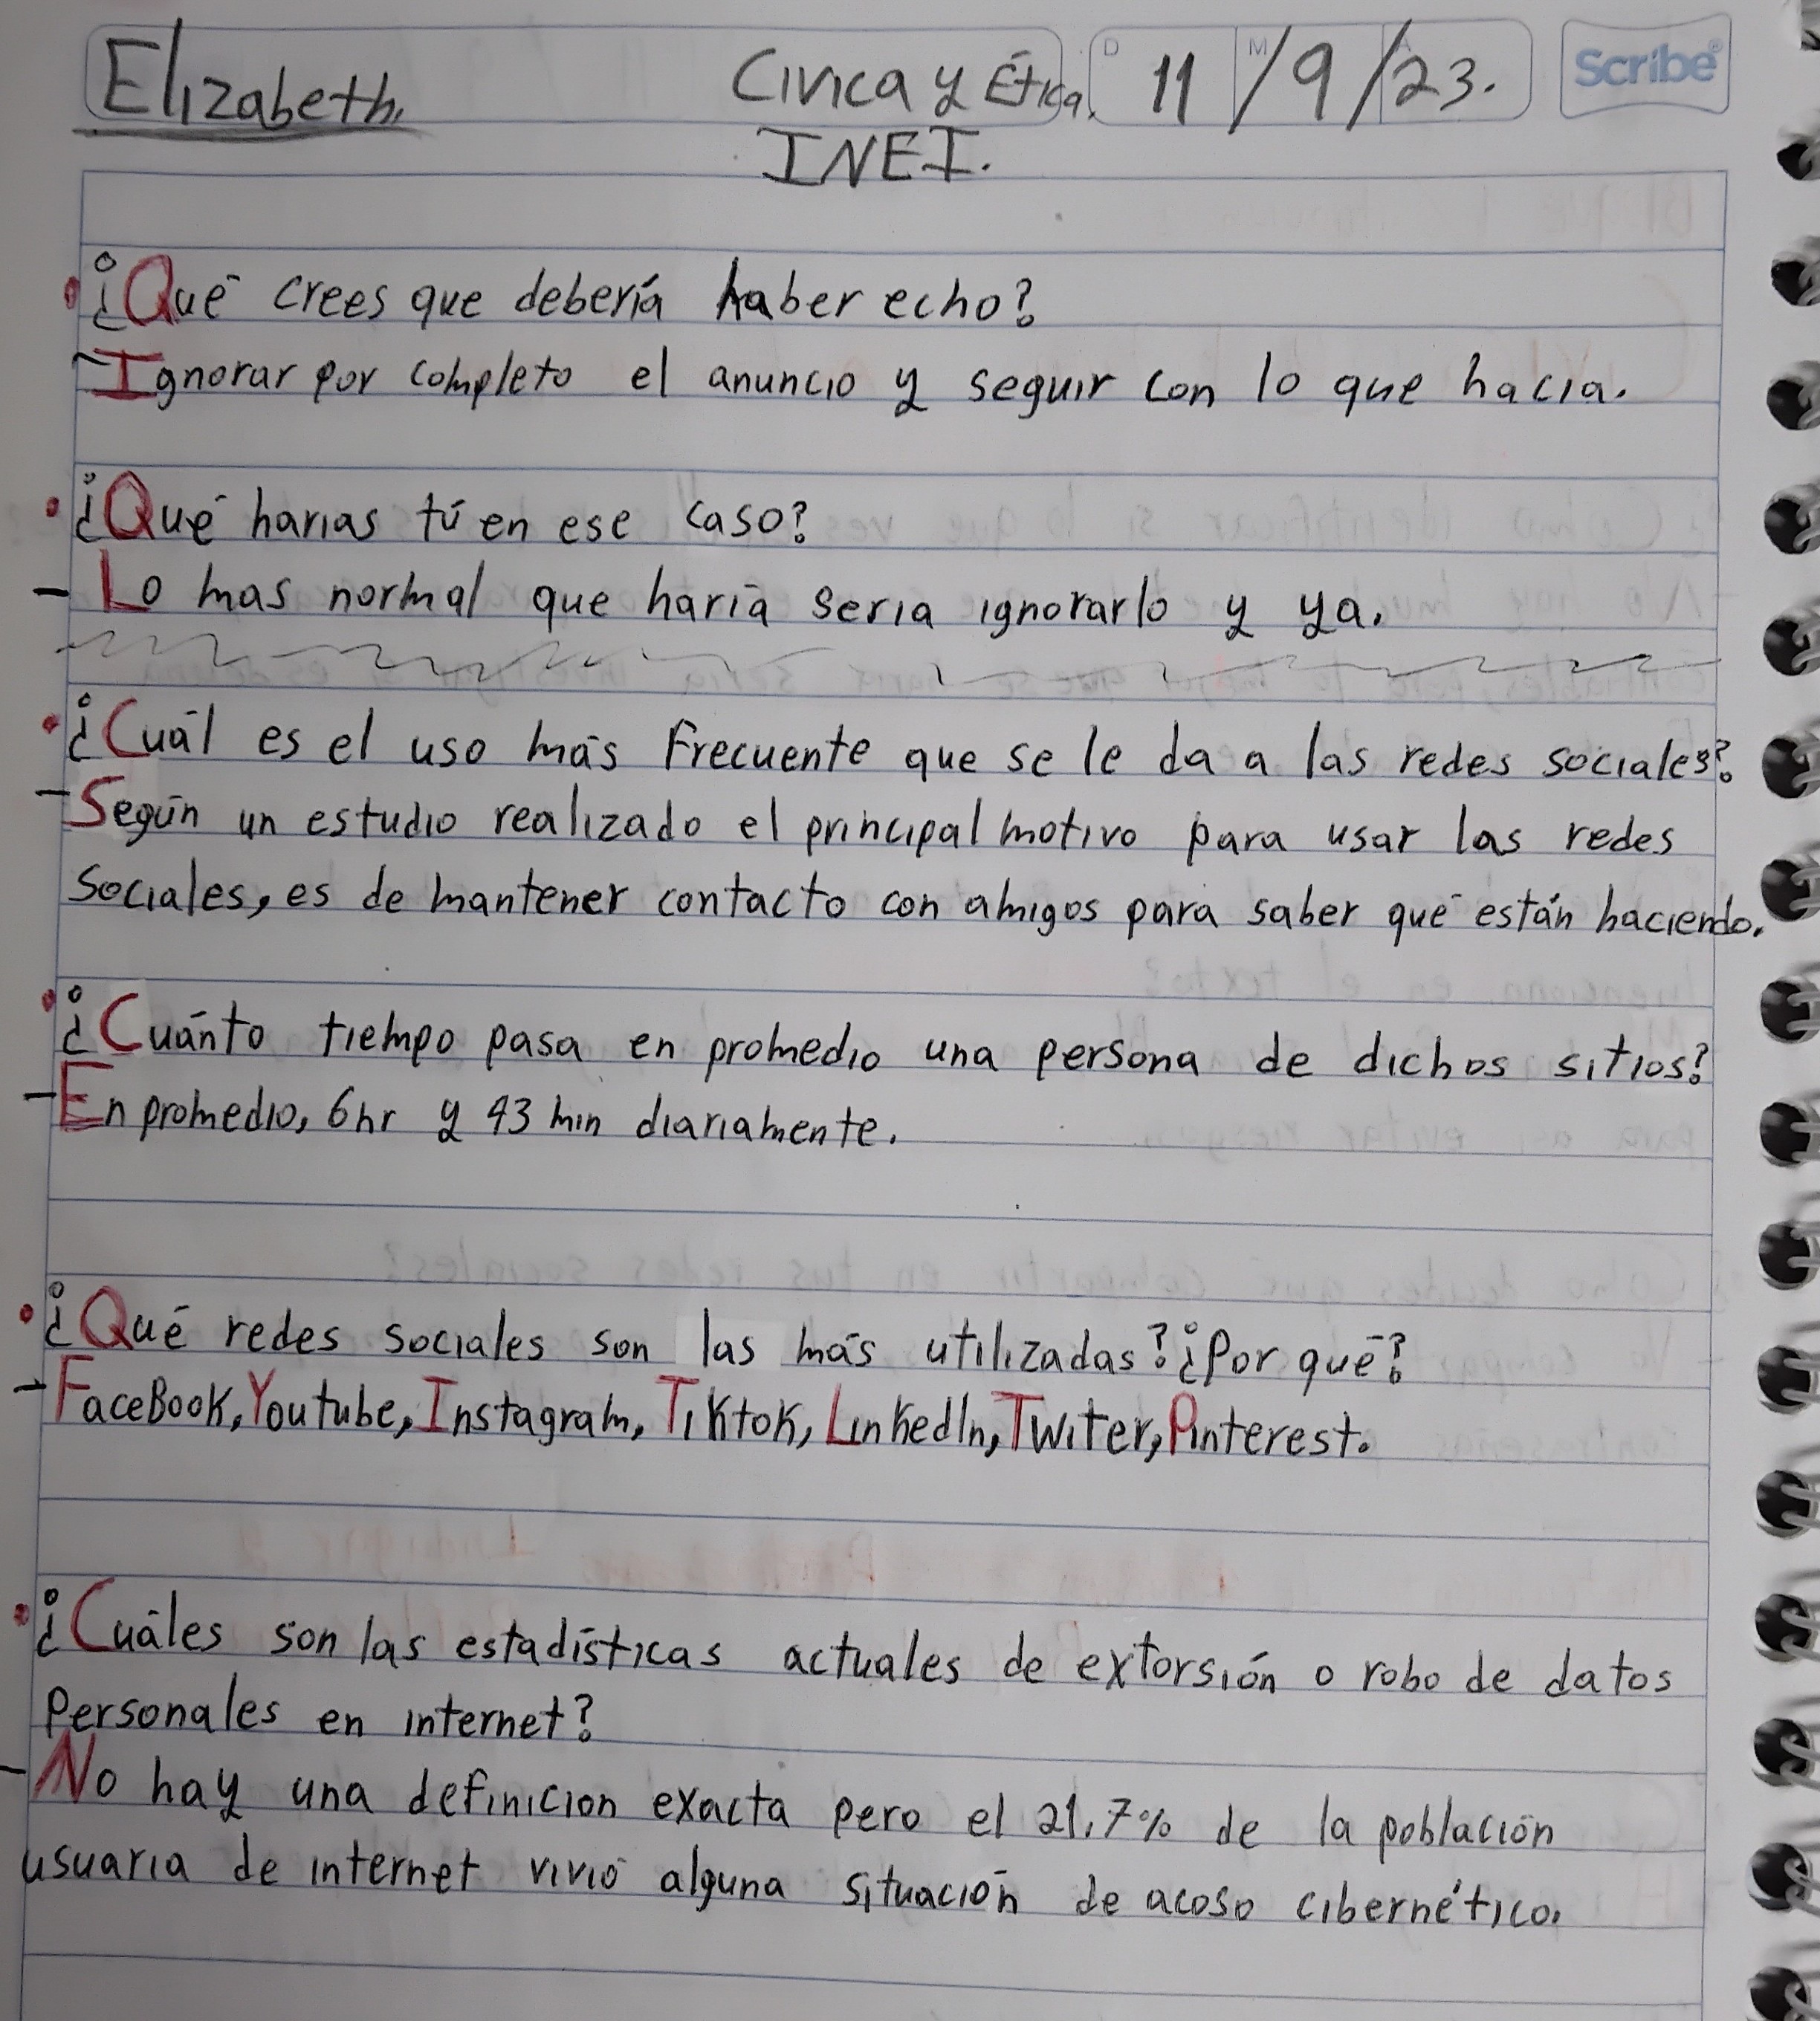 Elizabeth.
Civica y Ética.
D 11 / M 9 / A 23.
Scribe®
INEI.
¿Qué crees que debería haber echo?
-Ignorar por completo el anuncio y seguir con lo que hacia.
¿Qué harias tú en ese caso?
- Lo mas normal que haría seria ignorarlo y ya.
¿Cuál es el uso más frecuente que se le da a las redes sociales?
-Según un estudio realizado el principal motivo para usar las redes
sociales, es de mantener contacto con amigos para saber qué están haciendo.
¿Cuánto tiempo pasa en promedio una persona de dichos sitios?
-En promedio, 6hr y 43 min diariamente.
¿Qué redes sociales son las más utilizadas? ¿Por qué?
-FaceBook, Youtube, Instagram, Tiktok, LinkedIn, Twiter, Pinterest.
¿Cuáles son las estadísticas actuales de extorsión o robo de datos
personales en internet?
-No hay una definicion exacta pero el 21.7% de la población
usuaria de internet vivió alguna situación de acoso cibernético.